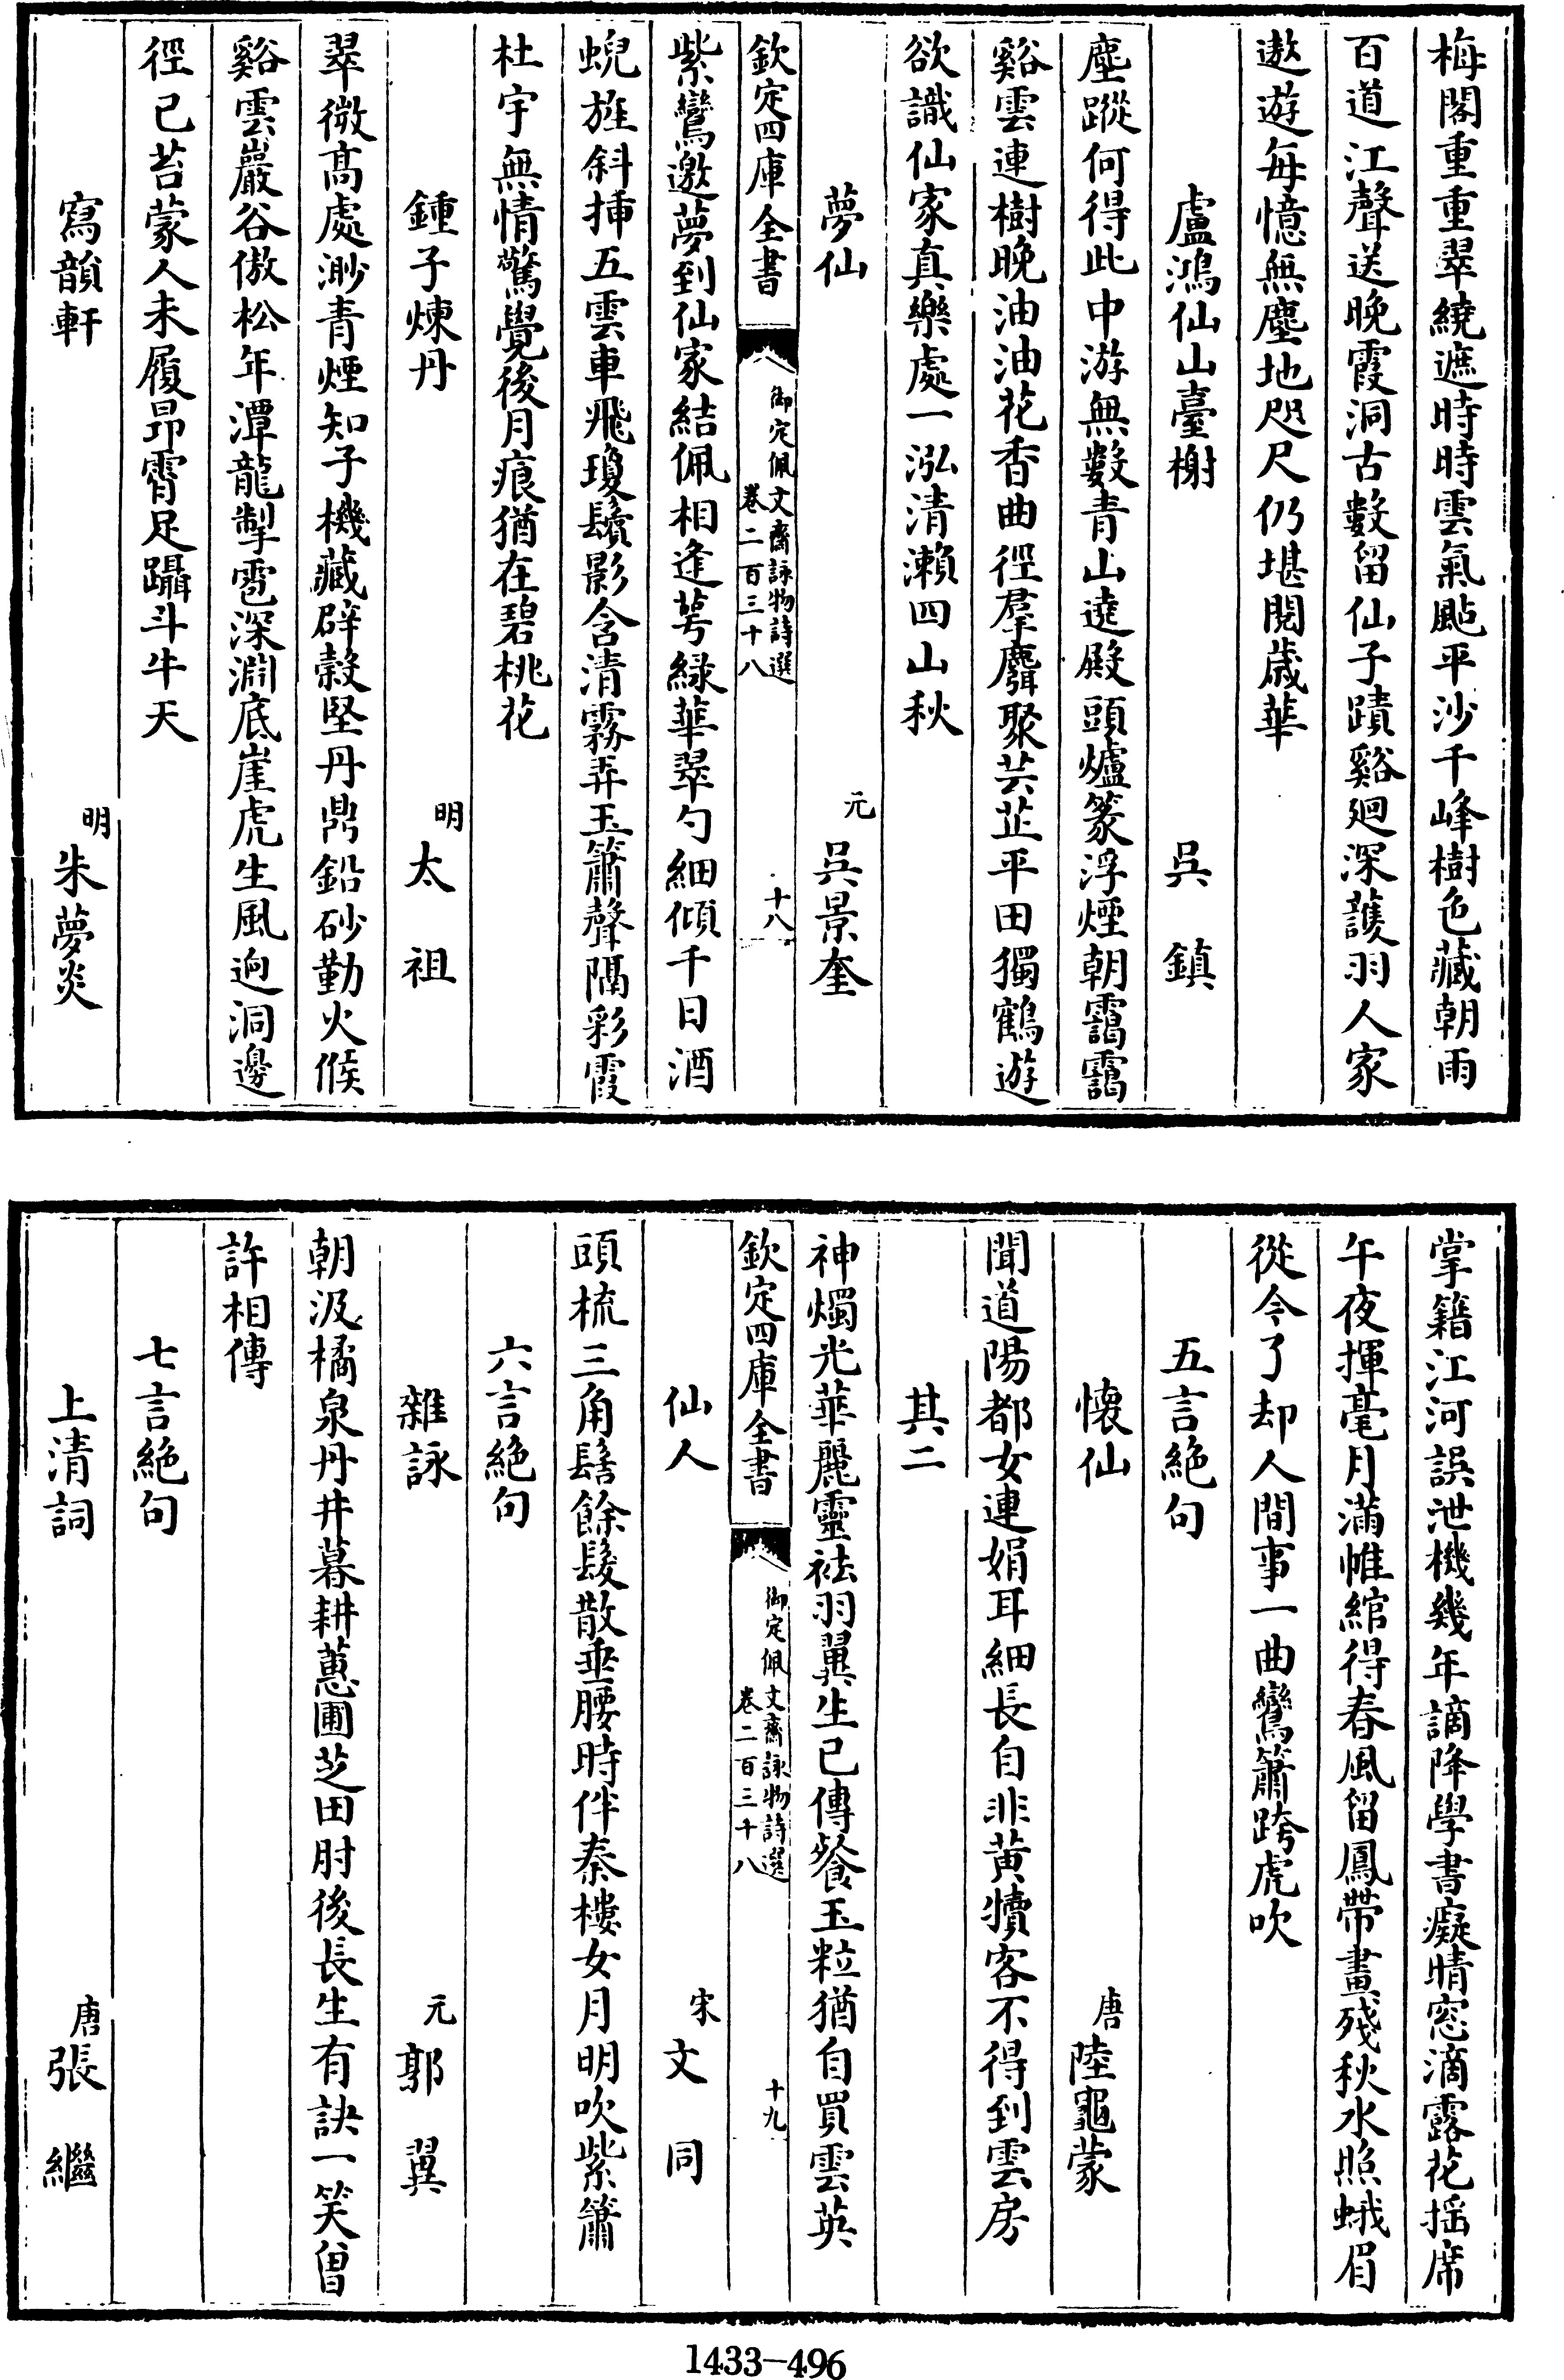 梅閣重重翠繞遮時時雲氣颭平沙千峰樹色藏朝雨
百道江聲送晚霞洞古數留仙子蹟谿廻深護羽人家
遨遊每憶無塵地咫尺仍堪閱歲華
盧鴻仙山臺榭　吳鎮
塵蹤何得此中游無數青山遶殿頭爐篆浮煙朝靄靄
谿雲連樹晚油油花香曲徑羣麛聚芸芷平田獨鶴遊
欲識仙家真樂處一泓清瀨四山秋
夢仙　元吳景奎
欽定四庫全書　御定佩文齋詠物詩選　卷二百三十八　十八
紫鸞邀夢到仙家結佩相逢萼綠華翠勺細傾千日酒
蜺旌斜揷五雲車飛瓊鬢影含清霧弄玉簫聲隔彩霞
杜宇無情驚覺後月痕猶在碧桃花
鍾子煉丹　明太祖
翠微髙處渺青煙知子機藏辟穀堅丹鼎鉛砂勤火候
谿雲巖谷傲松年潭龍掣雹深淵底崖虎生風逈洞邊
徑已苔蒙人未履昻霄足躡斗牛天
寫韻軒　明朱夢炎
掌籍江河誤泄機幾年謫降學書癡晴窓滴露花揺席
午夜揮毫月滿帷綰得春風留鳳帶畫殘秋水照蛾眉
從今了却人間事一曲鸞簫跨虎吹
五言絶句
懷仙　唐陸龜蒙
聞道陽都女連娟耳細長自非黄犢客不得到雲房
其二
神燭光華麗靈祛羽翼生已傳餐玉粒猶自買雲英
欽定四庫全書　御定佩文齋詠物詩選　卷二百三十八　十九
仙人　宋文同
頭梳三角髻餘髮散垂腰時伴秦樓女月明吹紫簫
六言絶句
雜詠　元郭翼
朝汲橘泉丹井暮耕蕙圃芝田肘後長生有訣一笑曾
許相傳
七言絶句
上清詞　唐張繼
1433—496